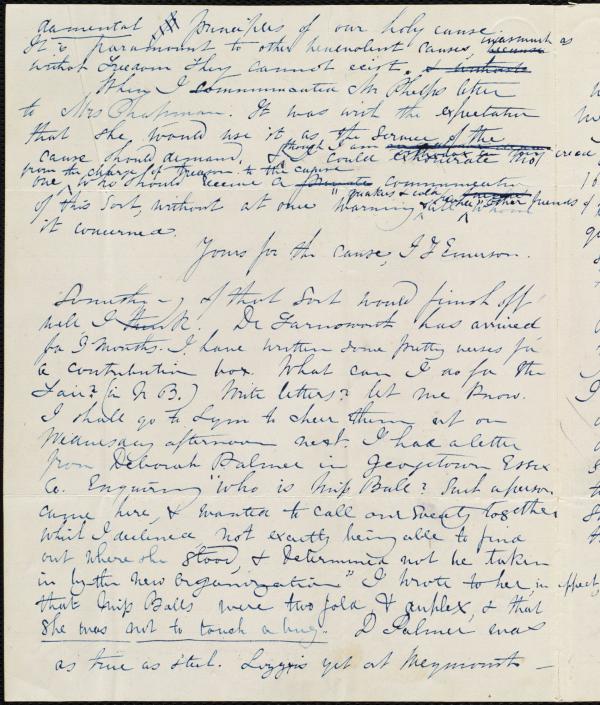 damental principles of our holy cause.
It is paramount to other benevolent causes, inasmuch as
without Freedom they cannot exist.
When I communicated Mr Phelps letter
to Mrs Chapman. It was with the expectation
that she would use it as the service of the
cause should demand, though I am
could not
from the charge of treason to the cause
one who should receive a private communication
of this sort, without at once warning all whom
it concerned.
Yours for the cause, J F Emerson.
Something of that sort would finish off
well I think. Dr Farnsworth has arrived
for 3 months. I have written some pretty verses for
a contribution box. What can I do for the
Fair? (in N B.) Write letters? let me know.
I shall go to Lynn to cheer them up on
Wednesday afternoon next. I had a letter
from Deborah Palmer in Georgetown Essex
Co. Enquiring "who is Miss Ball? Such a person
came here & wanted to call our Society together
which I declined, not exactly being able to find
out where she stood, & determined not be taken
in by the new organization" I wrote to her, in effect,
that Miss Balls were two fold & duplex, & that
she was not to touch a hug. D Palmer was
as true as steel. Lizzy is yet at Weymouth —